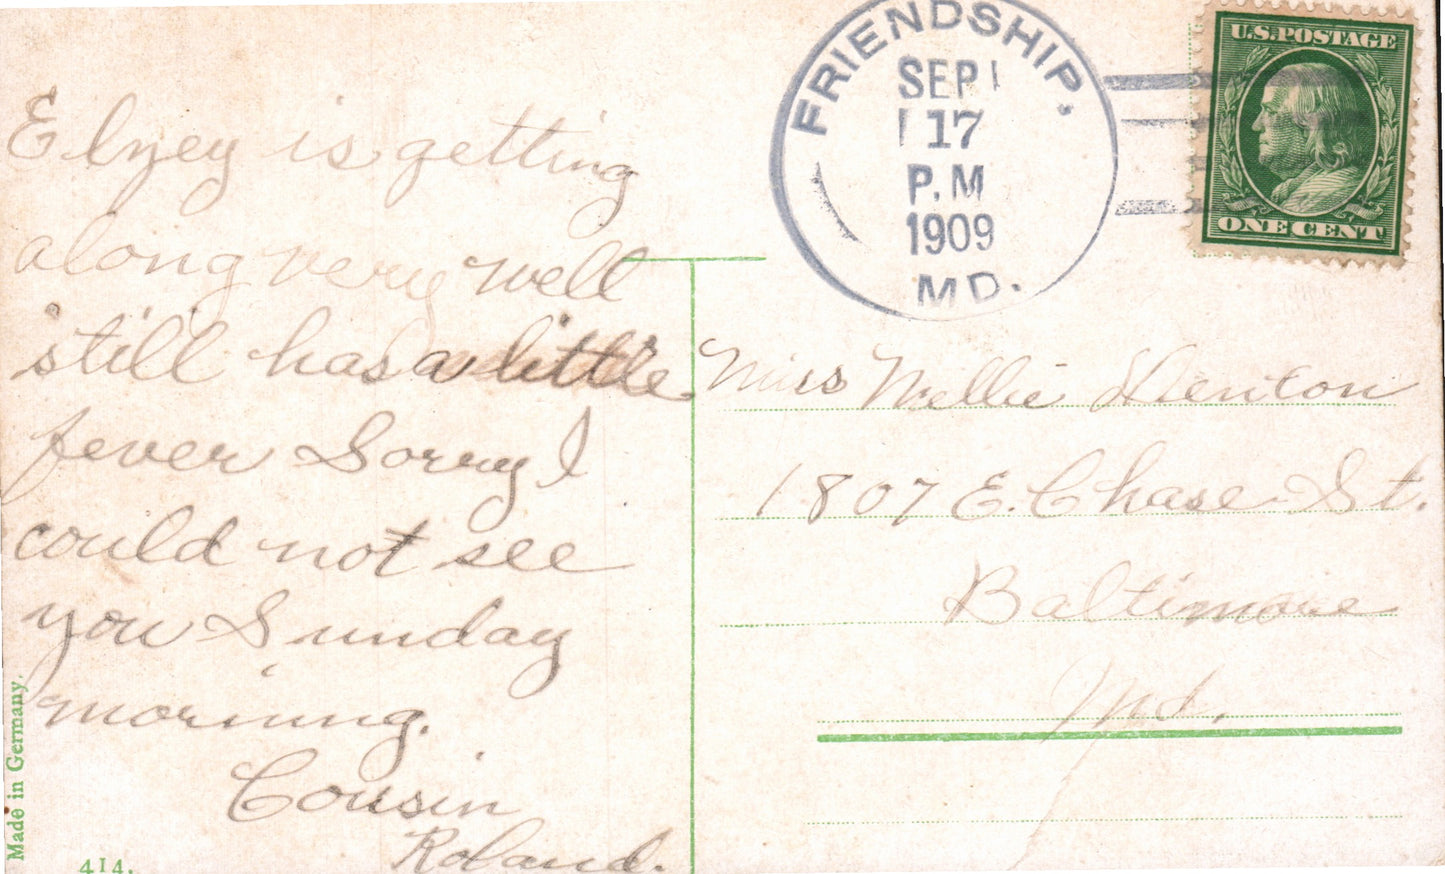 Elzey is getting
along very well
still has a little
fever Sorry I
could not see
you Sunday
morning.
Cousin
Roland.
Made in Germany.
414.
FRIENDSHIP,
SEP
17
P.M
1909
MD.
U.S.POSTAGE
ONE CENT
Miss Nellie Denton
1807 E. Chase St.
Baltimore
Md.